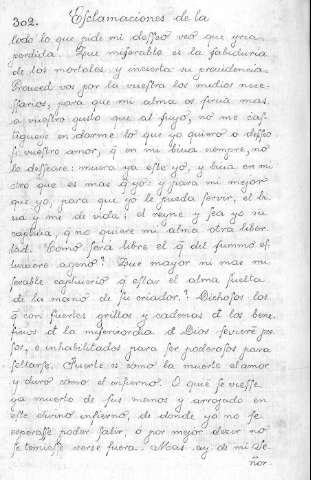 302. Esclamaciones de la
todo lo que pide mi desseo veo que yria
perdida. Que miserable es la sabiduria
de los mortales y incierta su prouidencia.
Proueed vos por la vuestra los medios nece-
ssarios, para que mi alma os sirua mas
a vuestro gusto que al suyo, no me cas-
tigueys en darme lo que yo quiero o desseo
si vuestro amor, q̃ en mi biua siempre, no
lo desseare: muera ya este yo, y biua en mi
otro que es mas q̃ yo: y para mi mejor
que yo, para que yo le pueda servir, el bi-
ua y me de vida; el reyne y sea yo su
captiua, q̃ no quiere mi alma otra liber-
tad. Como sera libre el q̃ del summo es-
tuuiere ageno? Que mayor ni mas mi-
serable captiuerio q̃ estar el alma suelta
de la mano de su criador? Dichosos los
q̃ con fuertes grillos y cadenas d̃ los bene-
ficios d̃ la misericordia d̃ Dios se viere pre-
sos, e inhabilitados para ser poderosos para
soltarse. Fuerte es como la muerte el amor
y duro como el infierno. O que se viesse
ya muerto de sus manos y arrojado en
este diuino infierno, de donde ya no se
esperasse poder salir, o por mejor dezir no
se temiesse verse fuera. Mas ay de mi Se-
ñor.